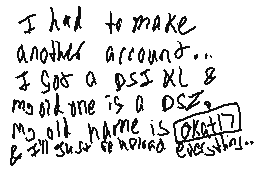 I had to make
another account...
I got a DSI XL &
my old one is a DSI.
My old name is okat17
& I'll just reupload everything..